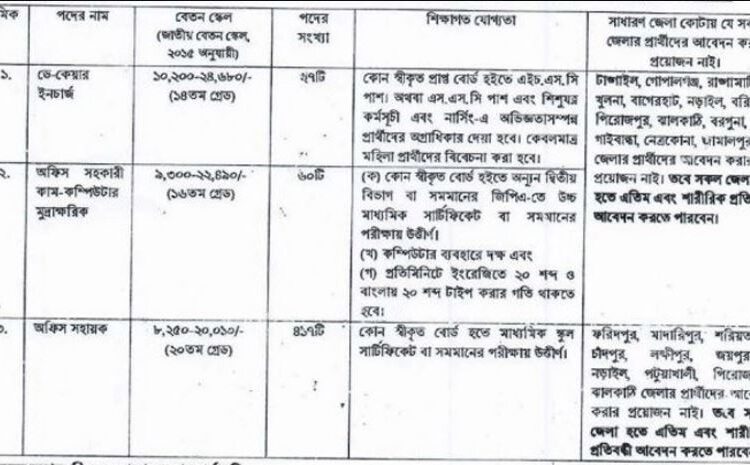 মিক
পদের নাম
বেতন স্কেল
(জাতীয় বেতন স্কেল,
২০১৫ অনুযায়ী)
পদের
সংখ্যা
শিক্ষাগত যোগ্যতা
সাধারণ জেলা কোটায় যে সক
জেলার প্রার্থীদের আবেদন কর
প্রয়োজন নাই।
১.
ডে-কেয়ার
ইনচার্জ
১০,২০০-২৪,৬৮০/-
(১৪তম গ্রেড)
২৭টি
কোন স্বীকৃত প্রাপ্ত বোর্ড হইতে এইচ.এস.সি
পাশ। অথবা এস.এস.সি পাশ এবং শিশুযত্ন
কর্মসূচী এবং নার্সিং-এ অভিজ্ঞতাসম্পন্ন
প্রার্থীদের অগ্রাধিকার দেয়া হবে। কেবলমাত্র
মহিলা প্রার্থীদের বিবেচনা করা হবে।
টাঙ্গাইল, গোপালগঞ্জ, রাঙ্গামাটি
খুলনা, বাগেরহাট, নড়াইল, বরি
পিরোজপুর, ঝালকাঠি, বরগুনা,
গাইবান্ধা, নেত্রকোনা, জামালপুর
জেলার প্রার্থীদের আবেদন করার
প্রয়োজন নাই। তবে সকল জেল
হতে এতিম এবং শারীরিক প্রতি
আবেদন করতে পারবেন।
২.
অফিস সহকারী
কাম-কম্পিউটার
মুদ্রাক্ষরিক
৯,৩০০-২২,৪৯০/-
(১৬তম গ্রেড)
৬০টি
(ক) কোন স্বীকৃত বোর্ড হইতে অন্যুন দ্বিতীয়
বিভাগ বা সমমানের জিপিএ-তে উচ্চ
মাধ্যমিক সার্টিফিকেট বা সমমানের
পরীক্ষায় উত্তীর্ণ।
(খ) কম্পিউটার ব্যবহারে দক্ষ এবং
(গ) প্রতিমিনিটে ইংরেজিতে ২০ শব্দ ও
বাংলায় ২০ শব্দ টাইপ করার গতি থাকতে
হবে।
৩.
অফিস সহায়ক
৮,২৫০-২০,০১০/-
(২০তম গ্রেড)
৪১৭টি
কোন স্বীকৃত বোর্ড হতে মাধ্যমিক স্কুল
সার্টিফিকেট বা সমমানের পরীক্ষায় উত্তীর্ণ।
ফরিদপুর, মাদারিপুর, শরিয়ত
চাঁদপুর, লক্ষীপুর, জয়পুর
নড়াইল, পটুয়াখালী, পিরোজ
ঝালকাঠি জেলার প্রার্থীদের আবে
করার প্রয়োজন নাই। তবে স
জেলা হতে এতিম এবং শারী
প্রতিবন্ধী আবেদন করতে পারবে